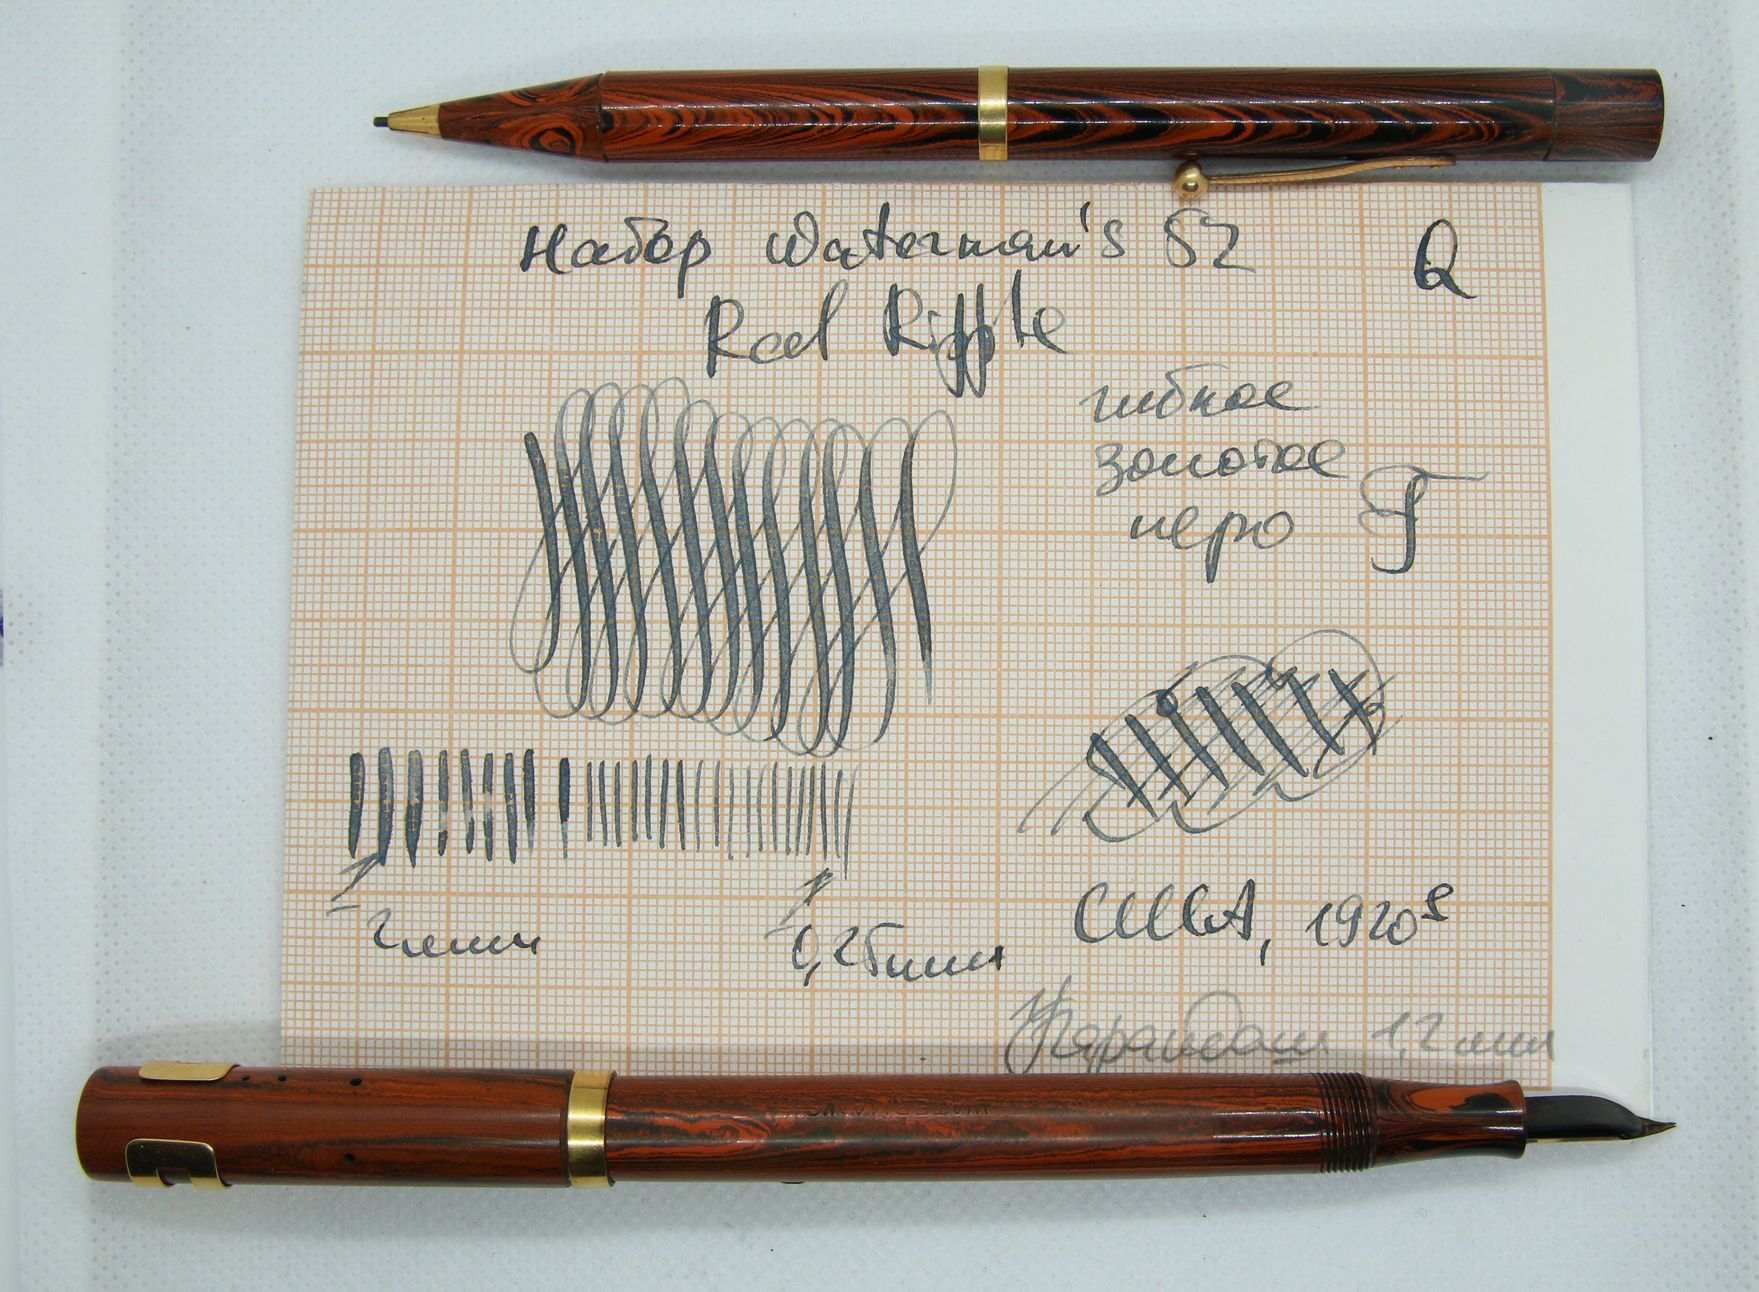 Набор Waterman's 52
Q
Red Ripple
гибкое
золотое
перо F
2 мм
0,25 мм
США, 1920s
Карандаш 1,2 мм